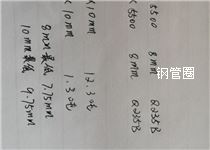 5500 8mm Q235B
<5500 8mm Q235B
×10mm 12.3吨
<10mm 1.3吨
8mm最低 7.75mm
10mm最低 9.75mm
钢管圈